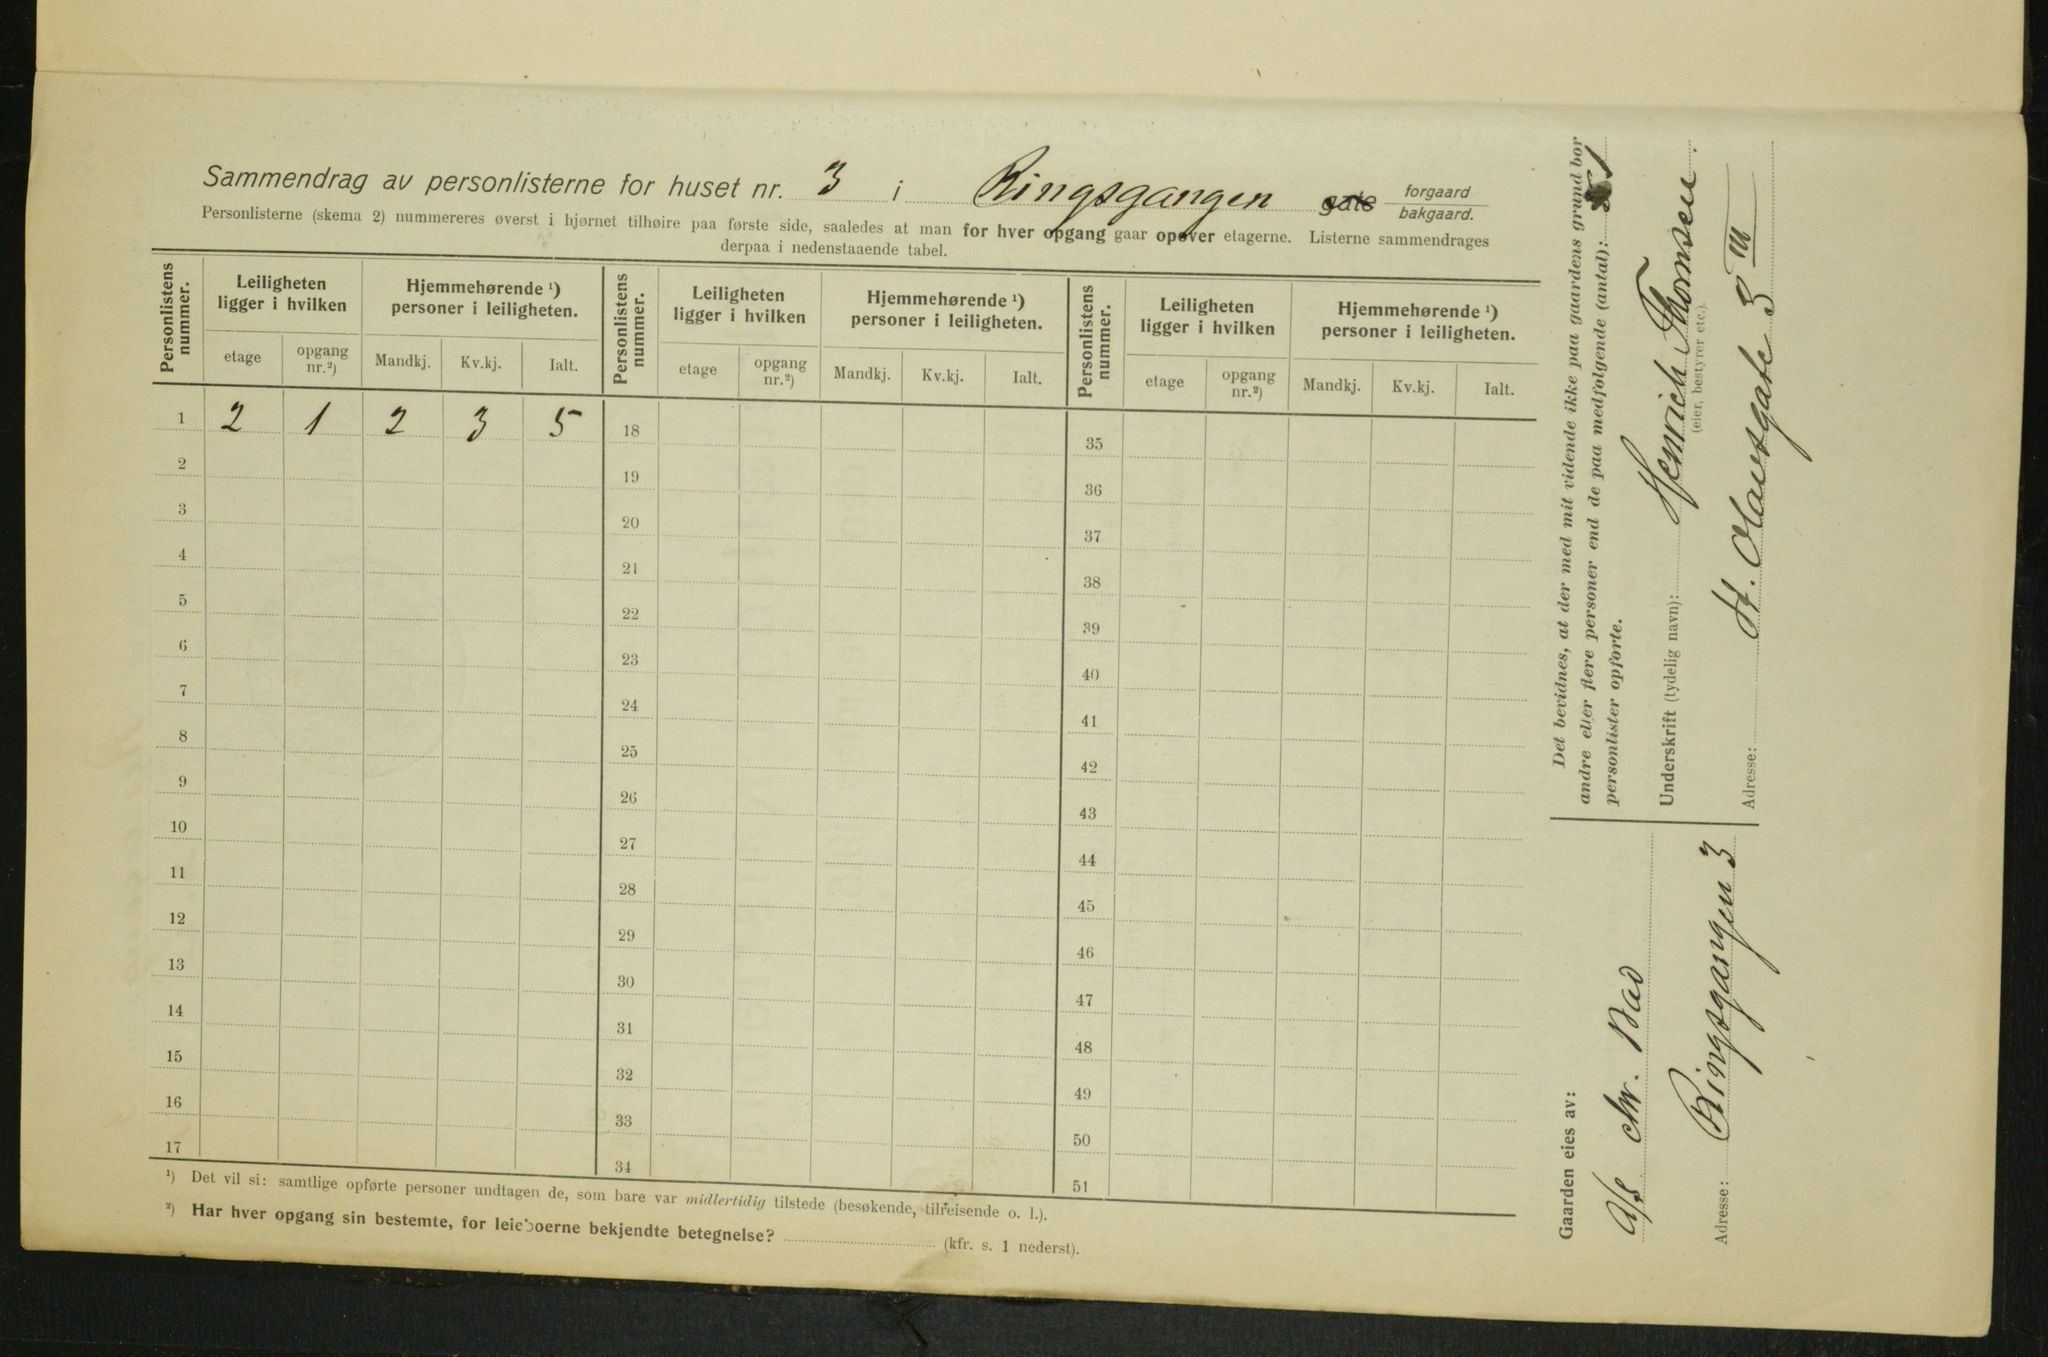 Sammendrag av personlisterne for huset nr. 3 i Ringsgangen gate forgaard bakgaard.
Personlisterne (skema 2) nummereres øverst i hjørnet tilhøire paa første side, saaledes at man for hver opgang gaar opover etagerne. Listerne sammendrages
derpaa i nedenstaaende tabel.
Personlistens nummer. Leiligheten ligger i hvilken Hjemmehørende ¹) personer i leiligheten. Personlistens nummer. Leiligheten ligger i hvilken Hjemmehørende ¹) personer i leiligheten. Personlistens nummer. Leiligheten ligger i hvilken Hjemmehørende ¹) personer i leiligheten.
etage opgang nr.²) Mandkj. Kv.kj. Ialt. etage opgang nr.²) Mandkj. Kv.kj. Ialt. etage opgang nr.²) Mandkj. Kv.kj. Ialt.
1 2 1 2 3 5 18 35
2 19 36
3 20 37
4 21 38
5 22 39
6 23 40
7 24 41
8 25 42
9 26 43
10 27 44
11 28 45
12 29 46
13 30 47
14 31 48
15 32 49
16 33 50
17 34 51
¹) Det vil si: samtlige opførte personer undtagen de, som bare var midlertidig tilstede (besøkende, tilreisende o. l.).
²) Har hver opgang sin bestemte, for leieboerne bekjendte betegnelse? (kfr. s. 1 nederst).
Det bevidnes, at der med mit vidende ikke paa gaardens grund bor
andre eller flere personer end de paa medfolgende (antal): 1
personlister opforte.
Underskrift (tydelig navn): Henrich Thomsen.
(eier, bestyrer etc.).
Adresse: St. Olavsgate 3 III
Gaarden eies av:
A/S Chr. Bad
Adresse: Ringsgangen 3